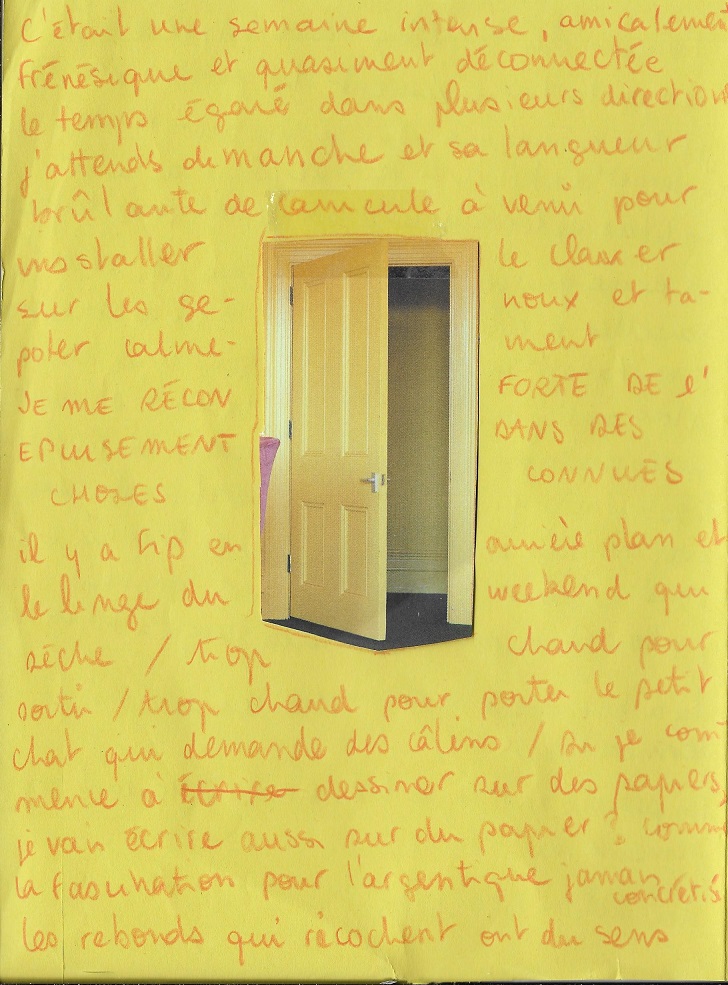 c'était une semaine intense, amicalement
frénésique et quasiment déconnectée
le temps égaré dans plusieurs directions
j'attends dimanche et sa langueur
brûlante de canicule à venir pour
installer le clavier
sur les ge- noux et ta-
poter calme- ment
JE ME RÉCON FORTE DE l'
EPUISEMENT DANS DES
CHOSES CONNUES
il y a fip en arrière plan et
le linge du weekend qui
sèche / trop chaud pour
sortir / trop chaud pour porter le petit
chat qui demande des câlins / si je com
mence à écrire dessiner sur des papiers,
je vais écrire aussi sur du papier? comme
la fascination pour l'argentique jamais concrétisée
les rebonds qui ricochent ont du sens